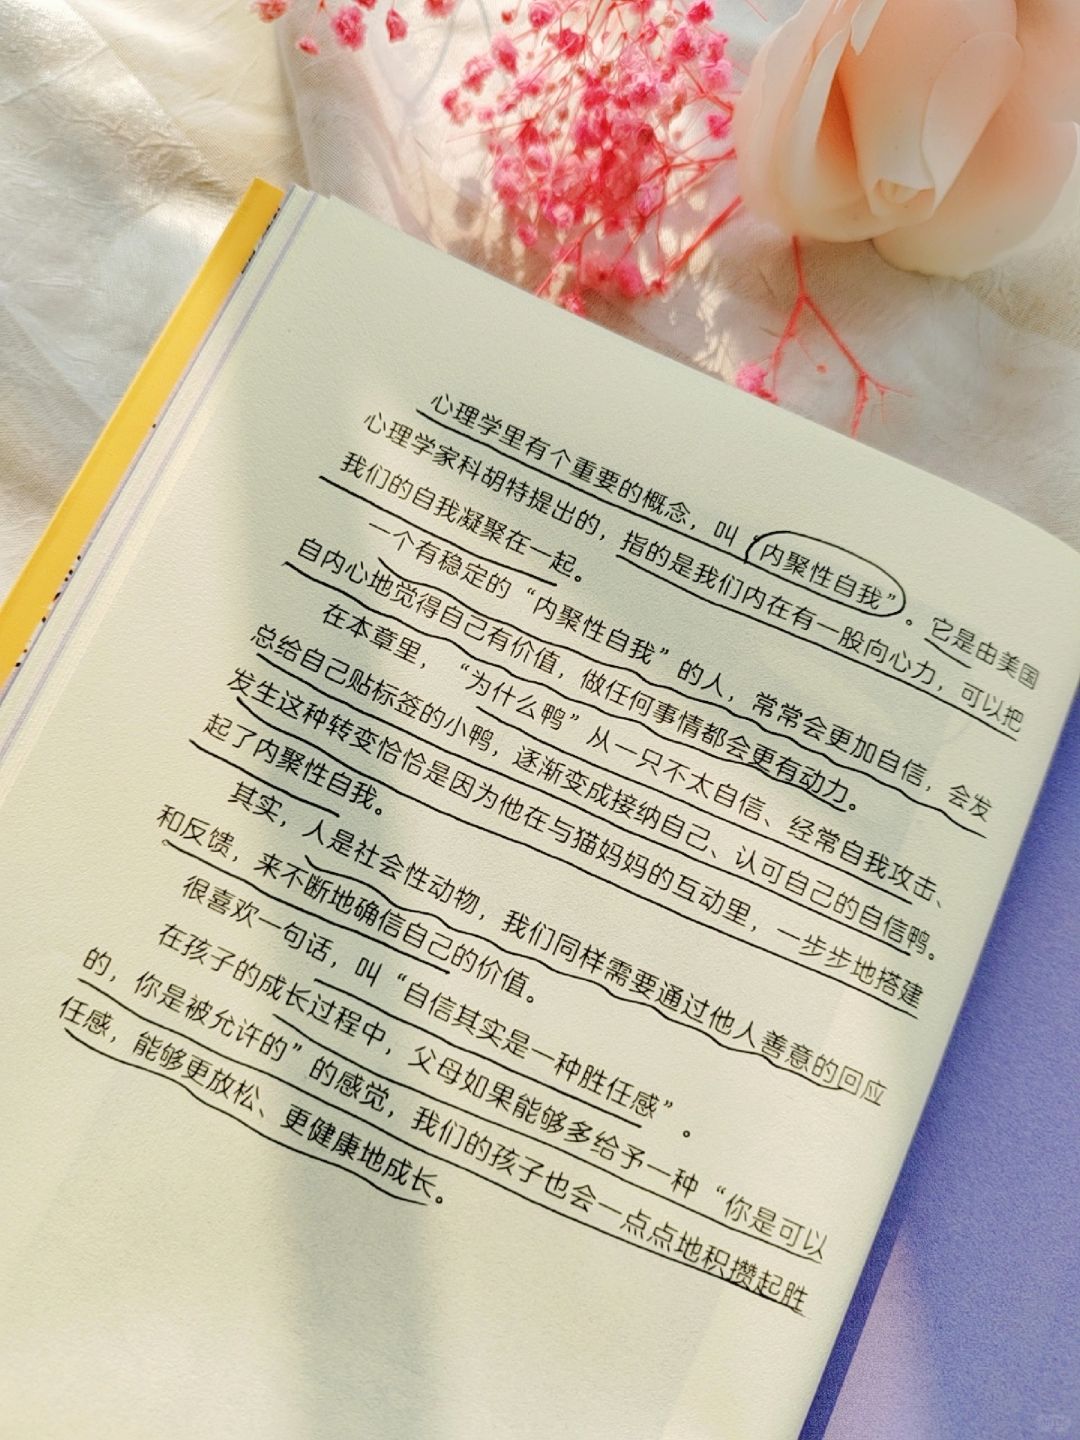 心理学里有个重要的概念，叫“内聚性自我”。它是由美国
心理学家科胡特提出的，指的是我们内在有一股向心力，可以把
我们的自我凝聚在一起。
一个有稳定的“内聚性自我”的人，常常会更加自信，会发
自内心地觉得自己有价值，做任何事情都会更有动力。
在本章里，“为什么鸭”从一只不太自信、经常自我攻击、
总给自己贴标签的小鸭，逐渐变成接纳自己、认可自己的自信鸭。
发生这种转变恰恰是因为他在与猫妈妈的互动里，一步步地搭建
起了内聚性自我。
其实，人是社会性动物，我们同样需要通过他人善意的回应
和反馈，来不断地确信自己的价值。
很喜欢一句话，叫“自信其实是一种胜任感”。
在孩子的成长过程中，父母如果能够多给予一种“你是可以
的，你是被允许的”的感觉，我们的孩子也会一点点地积攒起胜
任感，能够更放松、更健康地成长。